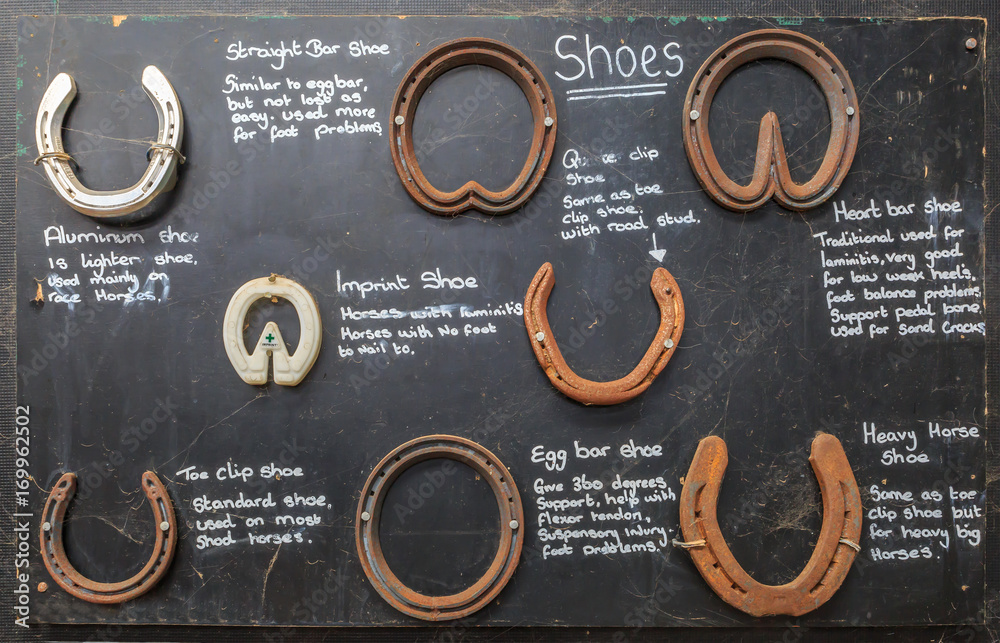 Shoes
Straight Bar Shoe
Similar to egg bar,
but not lost as
easy. used more
for foot problems
Aluminum shoe
is lighter shoe,
used mainly on
race Horses.
Imprint Shoe
Horses with
Horses with No foot
to Nail to.
clip
Shoe
Same as toe
clip shoe.
with road stud.
Heart bar shoe
Traditional used for
laminitis, very good
for low weak heels,
foot balance problems
Support pedal bone,
used for Sand Cracks
Toe clip shoe
Standard shoe,
used on most
Shod horses.
Egg bar shoe
Give 360 degrees
Support, help with
flexor tendon,
Suspensory injury,
foot problems.
Heavy Horse
Shoe
Same as toe
clip shoe but
for heavy big
Horses.
IMPRINT
Adobe Stock | #169962502